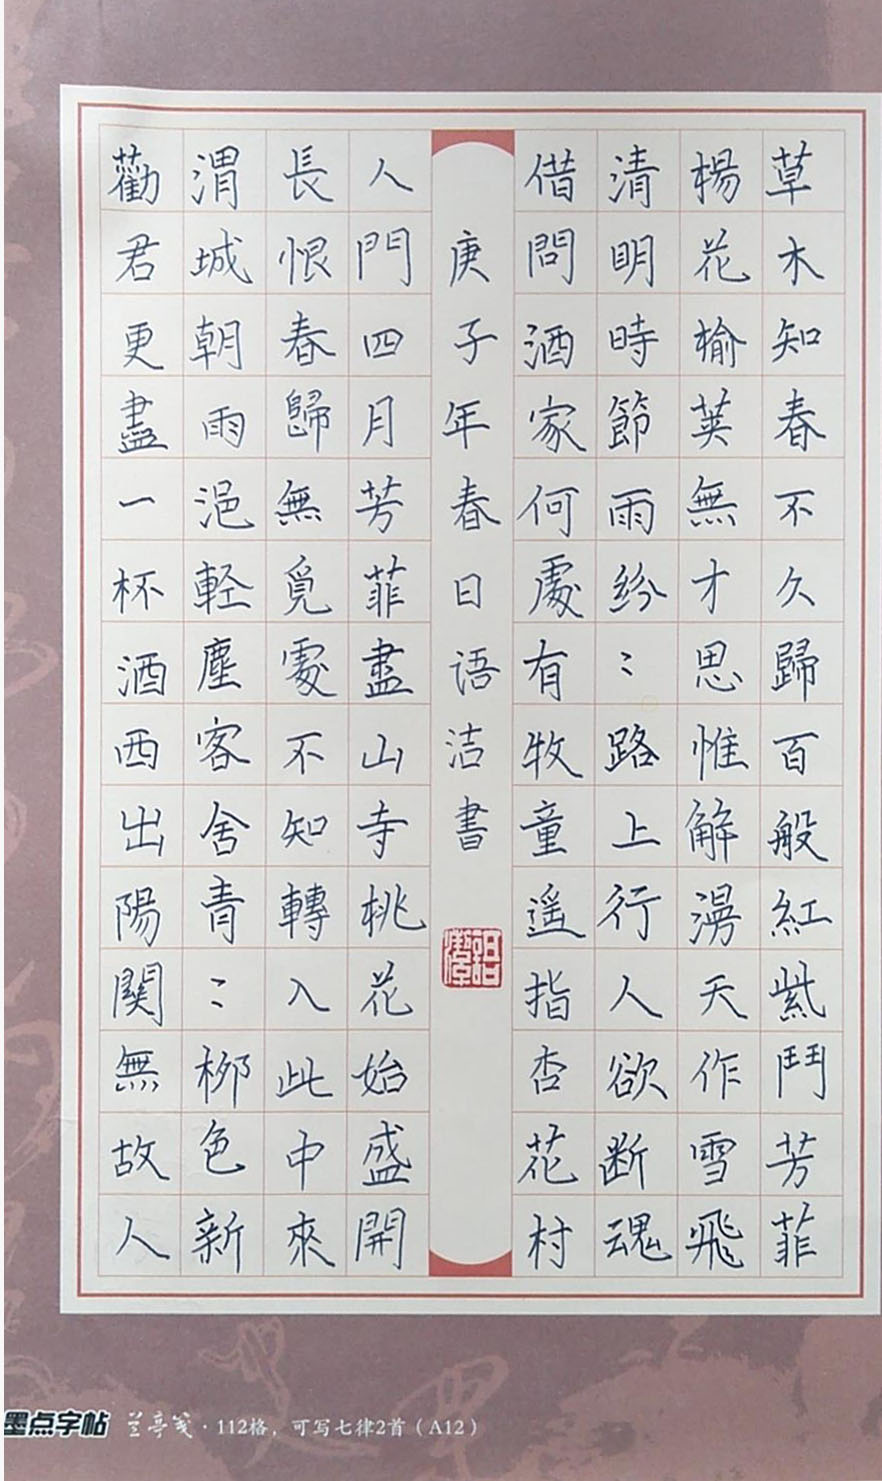 草木知春不久歸百般紅紫鬥芳菲
楊花榆莢無才思惟解漫天作雪飛
清明時節雨紛〻路上行人欲断魂
借問酒家何處有牧童遥指杏花村
庚子年春日语洁書
人門四月芳菲盡山寺桃花始盛開
長恨春歸無覓處不知轉入此中來
渭城朝雨浥輕塵客舍青〻柳色新
勸君更盡一杯酒西出陽關無故人
墨点字帖 兰亭笺·112格，可写七律2首（A12）